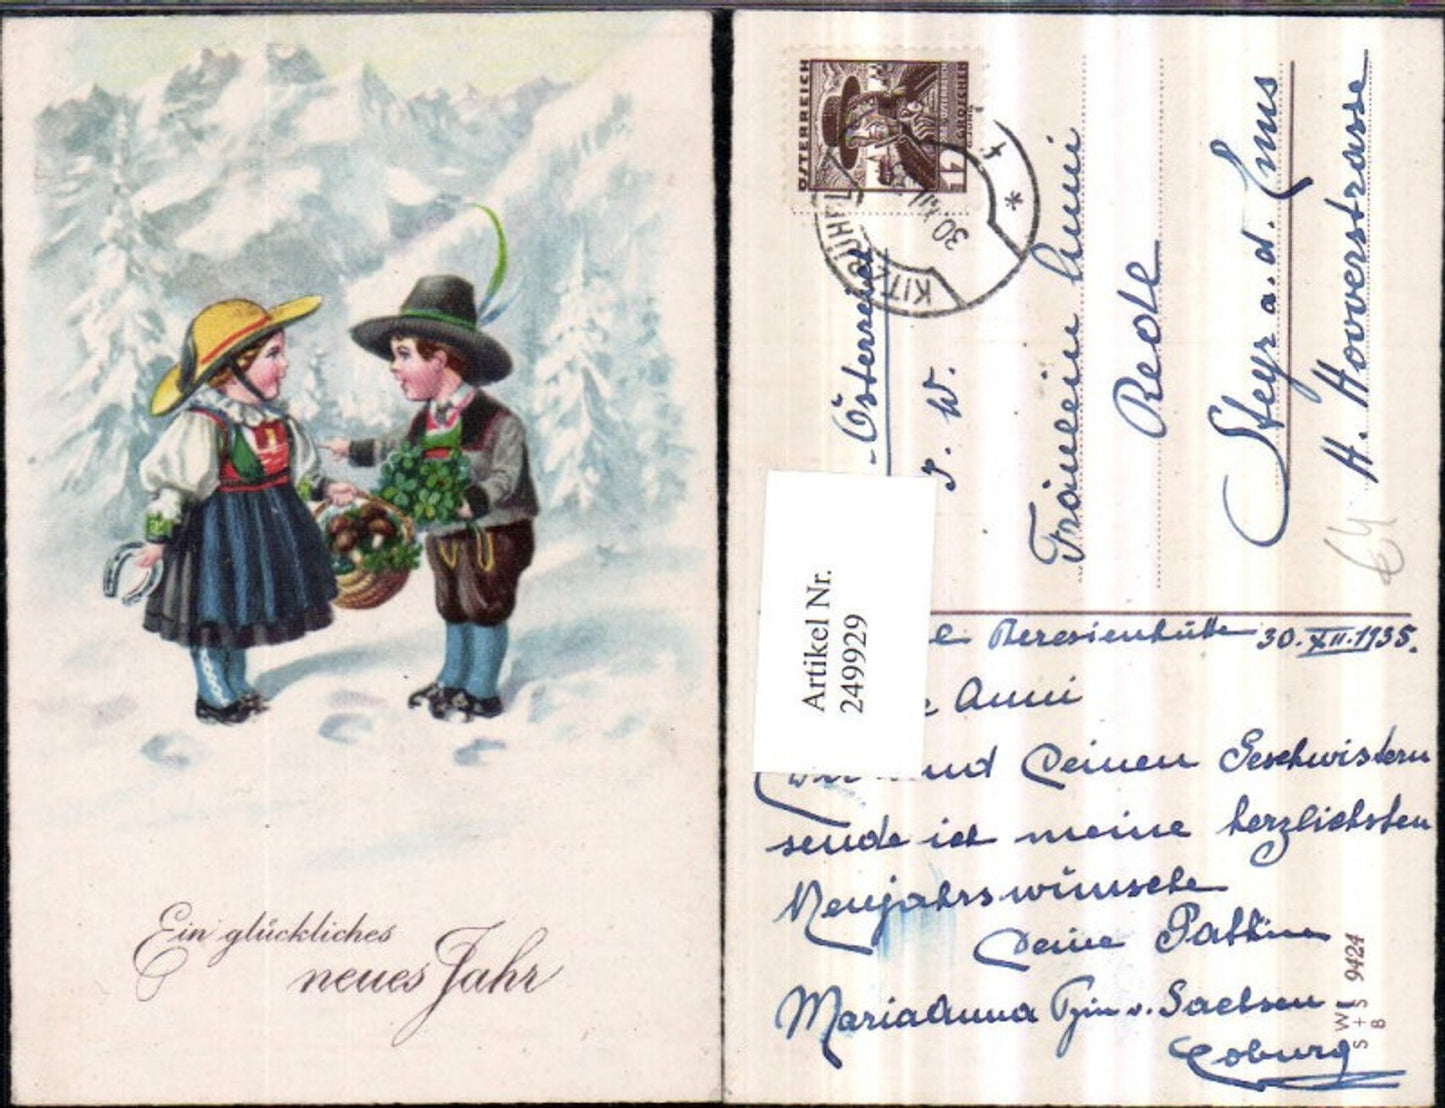 Ein glückliches
neues Jahr
ÖSTERREICH
GROSCHEN
12
KITZBÜHEL
30.XII.
Österreich
Fräulein Anni
Redl
Steyr a. d. Enns
H. Hooverstrasse
Artikel Nr.
249929
Theresienhütte 30.XII.1935.
Anni
Dir und Deinen Geschwistern
sende ich meine herzlichsten
Neujahrswünsche
Deine Pattin
Maria Anna Pzin v. Sachsen
Coburg
W
S+S 9424
B